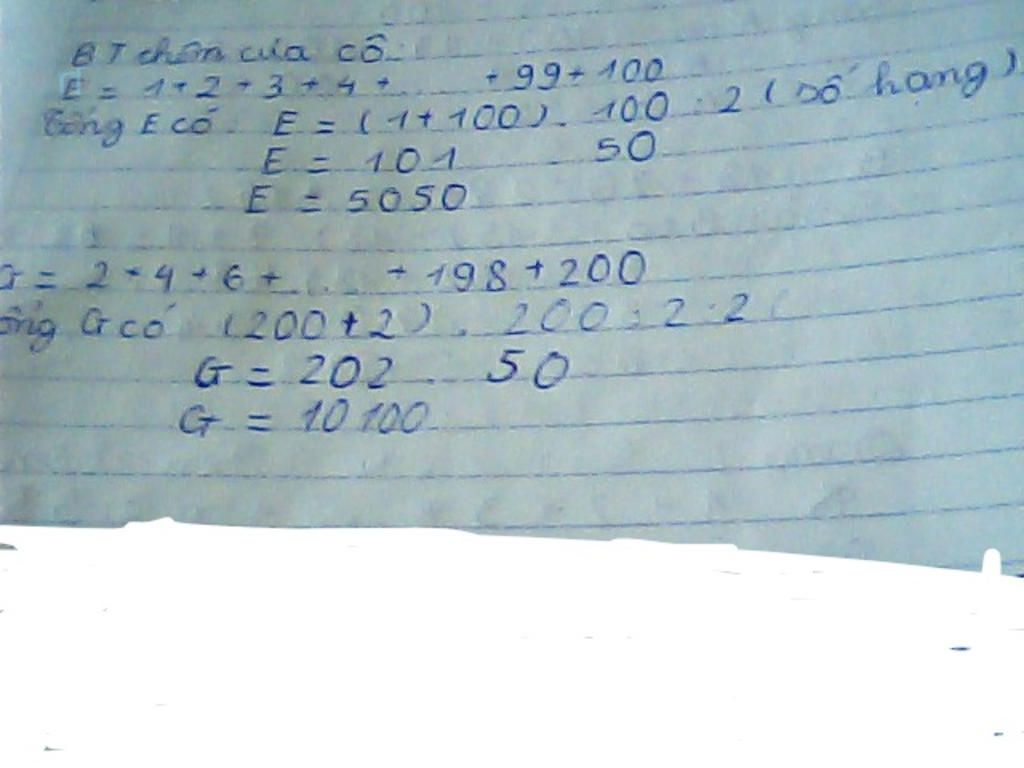 BT thêm của cô:
E = 1 + 2 + 3 + 4 + ..... + 99 + 100
Tổng E có: E = (1 + 100) . 100 : 2 (số hạng)
E = 101 50
E = 5050
G = 2 + 4 + 6 + ..... + 198 + 200
ổng G có (200 + 2) . 200 : 2 : 2 (
G = 202 . 50
G = 10 100